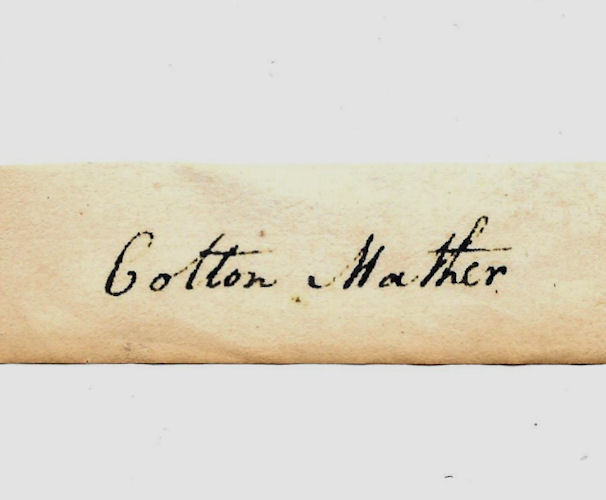 Cotton Mather